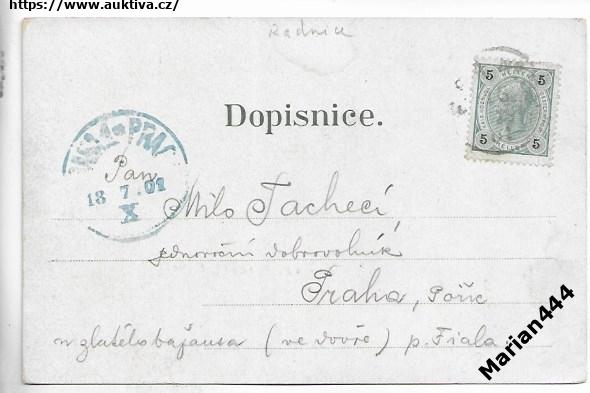 https://www.auktiva.cz/
Radnice
5 5
5 5
Dopisnice.
PRAG
18 7.01
X
Pan
Milo Tachecí,
jednoroční dobrovolník
Praha, Poříč
u zlatého bažanta (ve dvoře) p. Fiala
Marian444